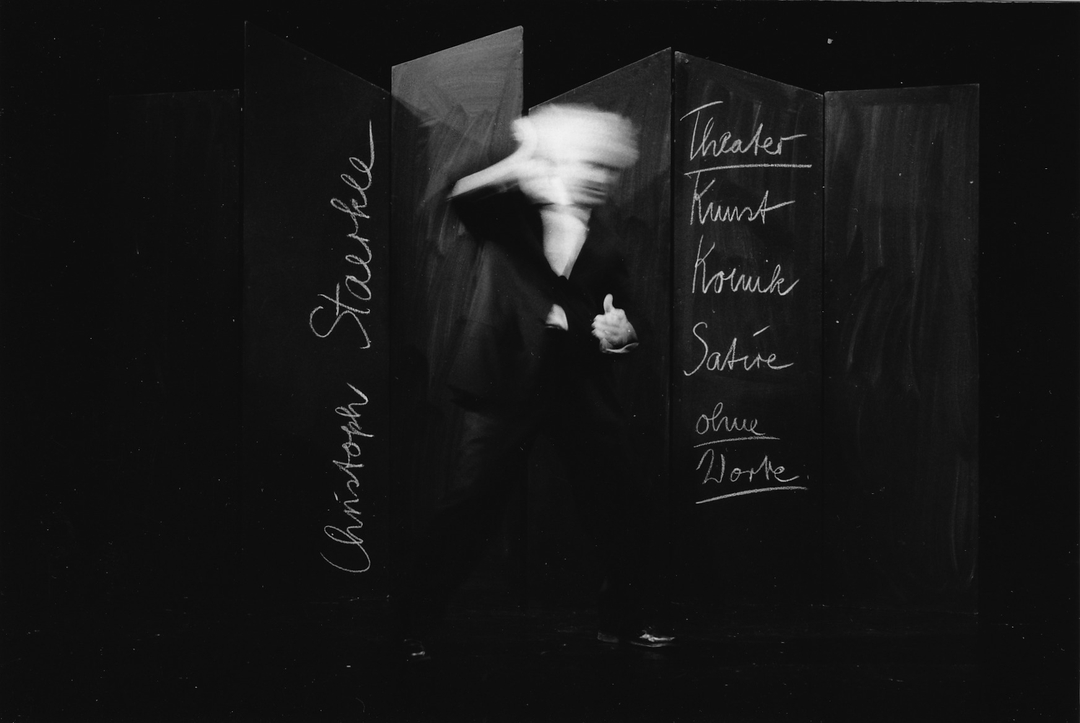 Christoph Staerkle
Theater
Kunst
Komik
Satire
ohne
Worte.